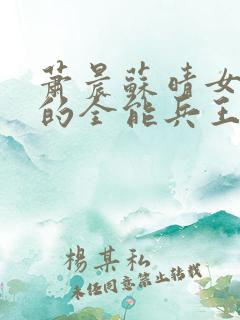 蕭晨蘇晴女
的全能兵王
楊某私
未经同意禁止转载